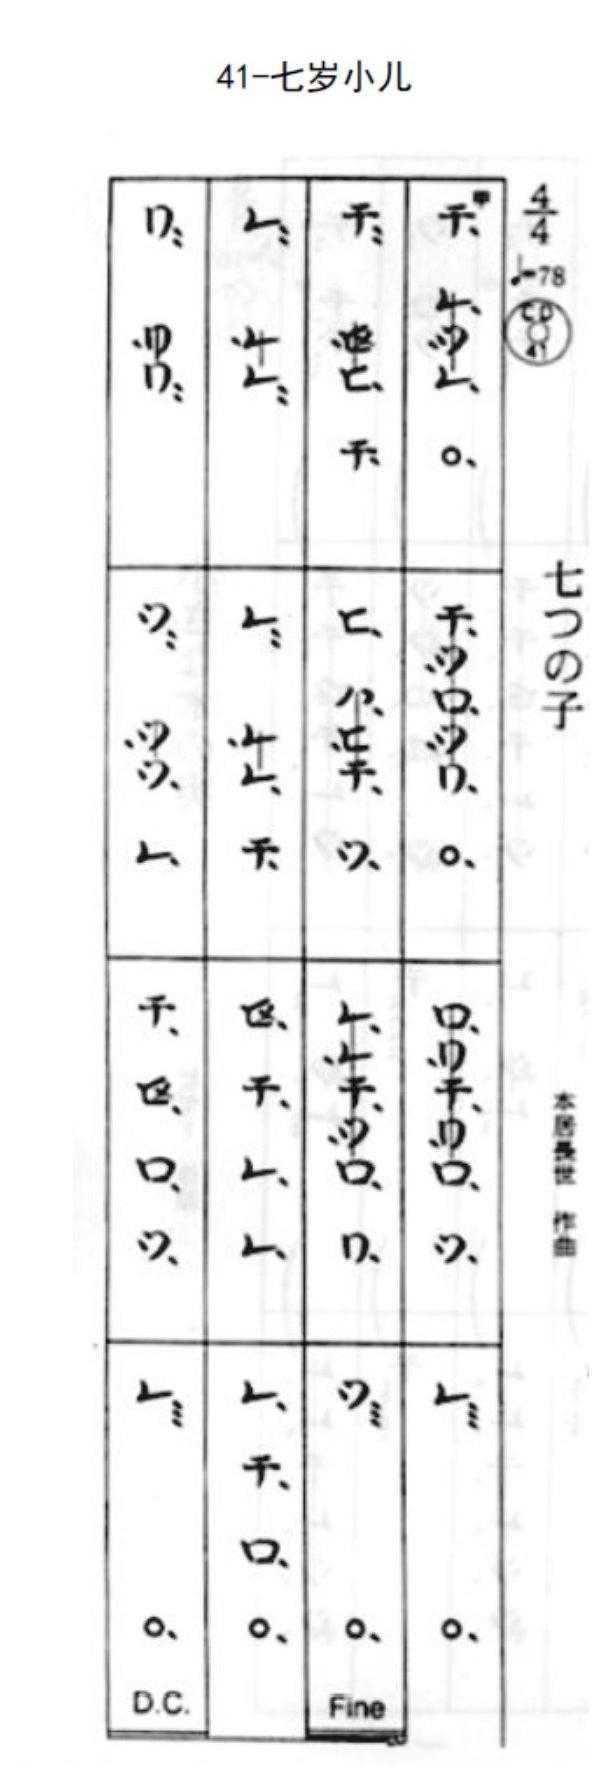 41-七岁小儿
4/4
♩=78
CD
41
七つの子
本居長世 作曲
甲
チ、レ、ツレ、○、
チ、ツロ、ツワ、○、
ロ、ワチ、ワロ、ツ、
レ、○、
チ、ヒ、チ、
ヒ、ハ、ヒチ、ツ、
レ、レチ、ツロ、ワ、
ツ、○、
Fine
レ、レレ、
レ、レレ、チ、
チ、レ、レ、
レ、チ、ロ、○、
ワ、ワワ、
ツ、ツツ、レ、
チ、ロ、ツ、
レ、○、
D.C.